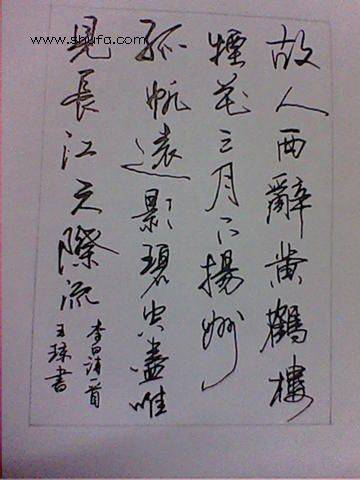 www.shufa.com
故人西辭黄鶴樓
煙花三月下揚州
孤帆遠影碧空盡唯
見長江天際流
李白诗一首
王琼書